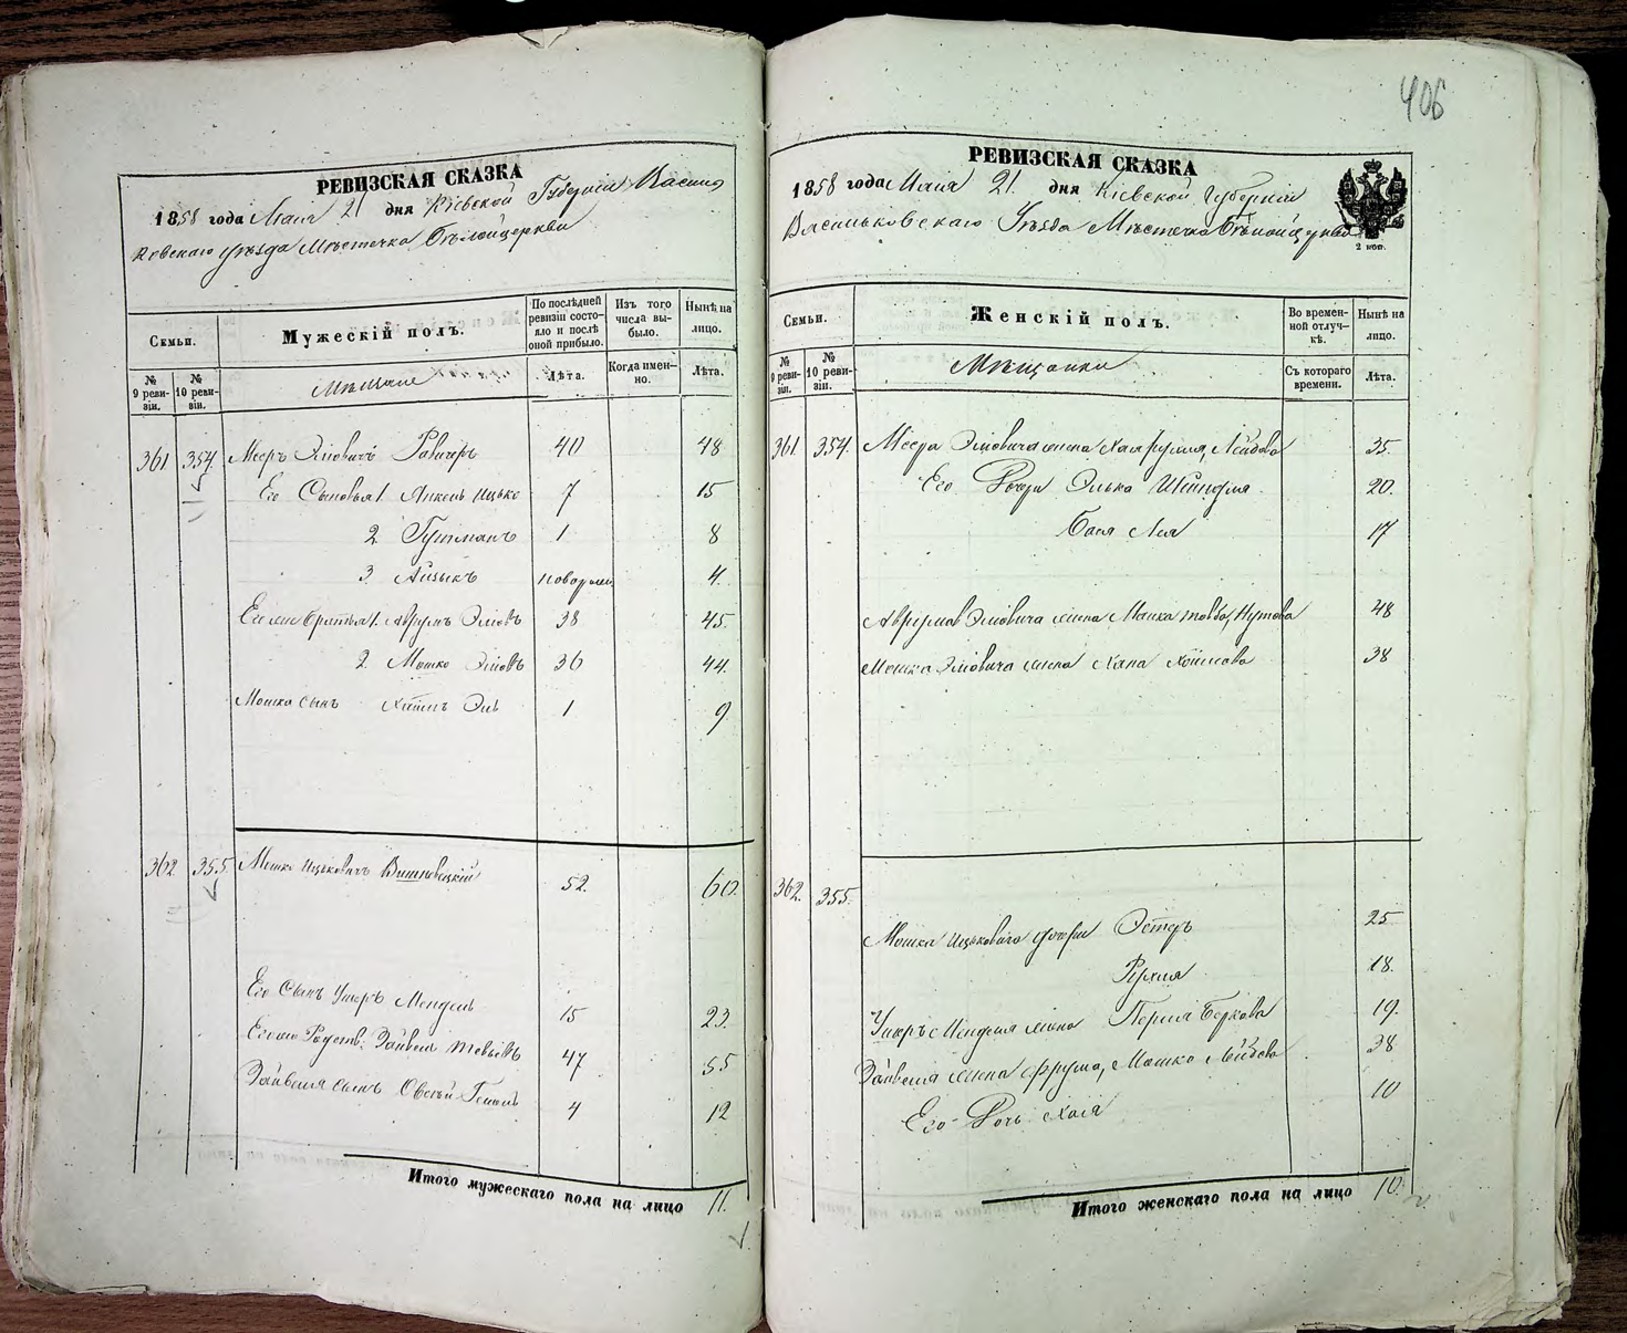 406
РЕВИЗСКАЯ СКАЗКА
1858 года Мая 21 дня Кіевской Губерніи Василь
ковскаго уѣзда Мѣстечка Бѣлойцеркви
Семьи.
Мужескій полъ.
По послѣдней ревизіи состояло и послѣ оной прибыло.
Изъ того числа выбыло.
Нынѣ на лицо.
№ 9 ревизіи.
№ 10 ревизіи.
Мѣщане
Лѣта.
Когда именно.
Лѣта.
361 354 Мееръ Эліовичъ 40 48
Его Сыновья 1. Янкель Ицько 7 15
2 Гутманъ 1 8
3. Айзыкъ новорожд. 4.
Его же братья 1. Аврумъ Эліовъ 38 45
2. Мошко Эліовъ 36 44.
Мошка сынъ Эль 1 9.
362 355. Мошко Ицьковичъ Вишневецкій 52. 60.
Его Сынъ Ушеръ Мендель 15 23.
Его же Родств. Зайвель Тевьевъ 47 55
Зайвеля сынъ Овсѣй 4 12
Итого мужескаго пола на лицо 11.
РЕВИЗСКАЯ СКАЗКА
1858 года Мая 21. дня Кіевской Губерніи
Васильковскаго Уѣзда Мѣстечка Бѣлойцеркви
2 коп.
Семьи.
Женскій полъ.
Во временной отлучкѣ.
Нынѣ на лицо.
№ 9 ревизіи.
№ 10 ревизіи.
Мѣщанки
Съ котораго времени.
Лѣта.
361. 354. Меера Эліовича жена Лейбова 35.
Его Дочери Элька Шейндля 20.
Бася Лея 17
Аврумов Эліовича жена 48
Мошка Эліовича жена Хана 38
362. 355.
Мошка Ицьковича дочери Эстеръ 25
Рухля 18.
Ушеръ Менделя жена Перля Беркова 19.
Зайвеля жена Фрума, Мошко Лейбова 38
Его Дочь Хая 10
Итого женскаго пола на лицо 10.